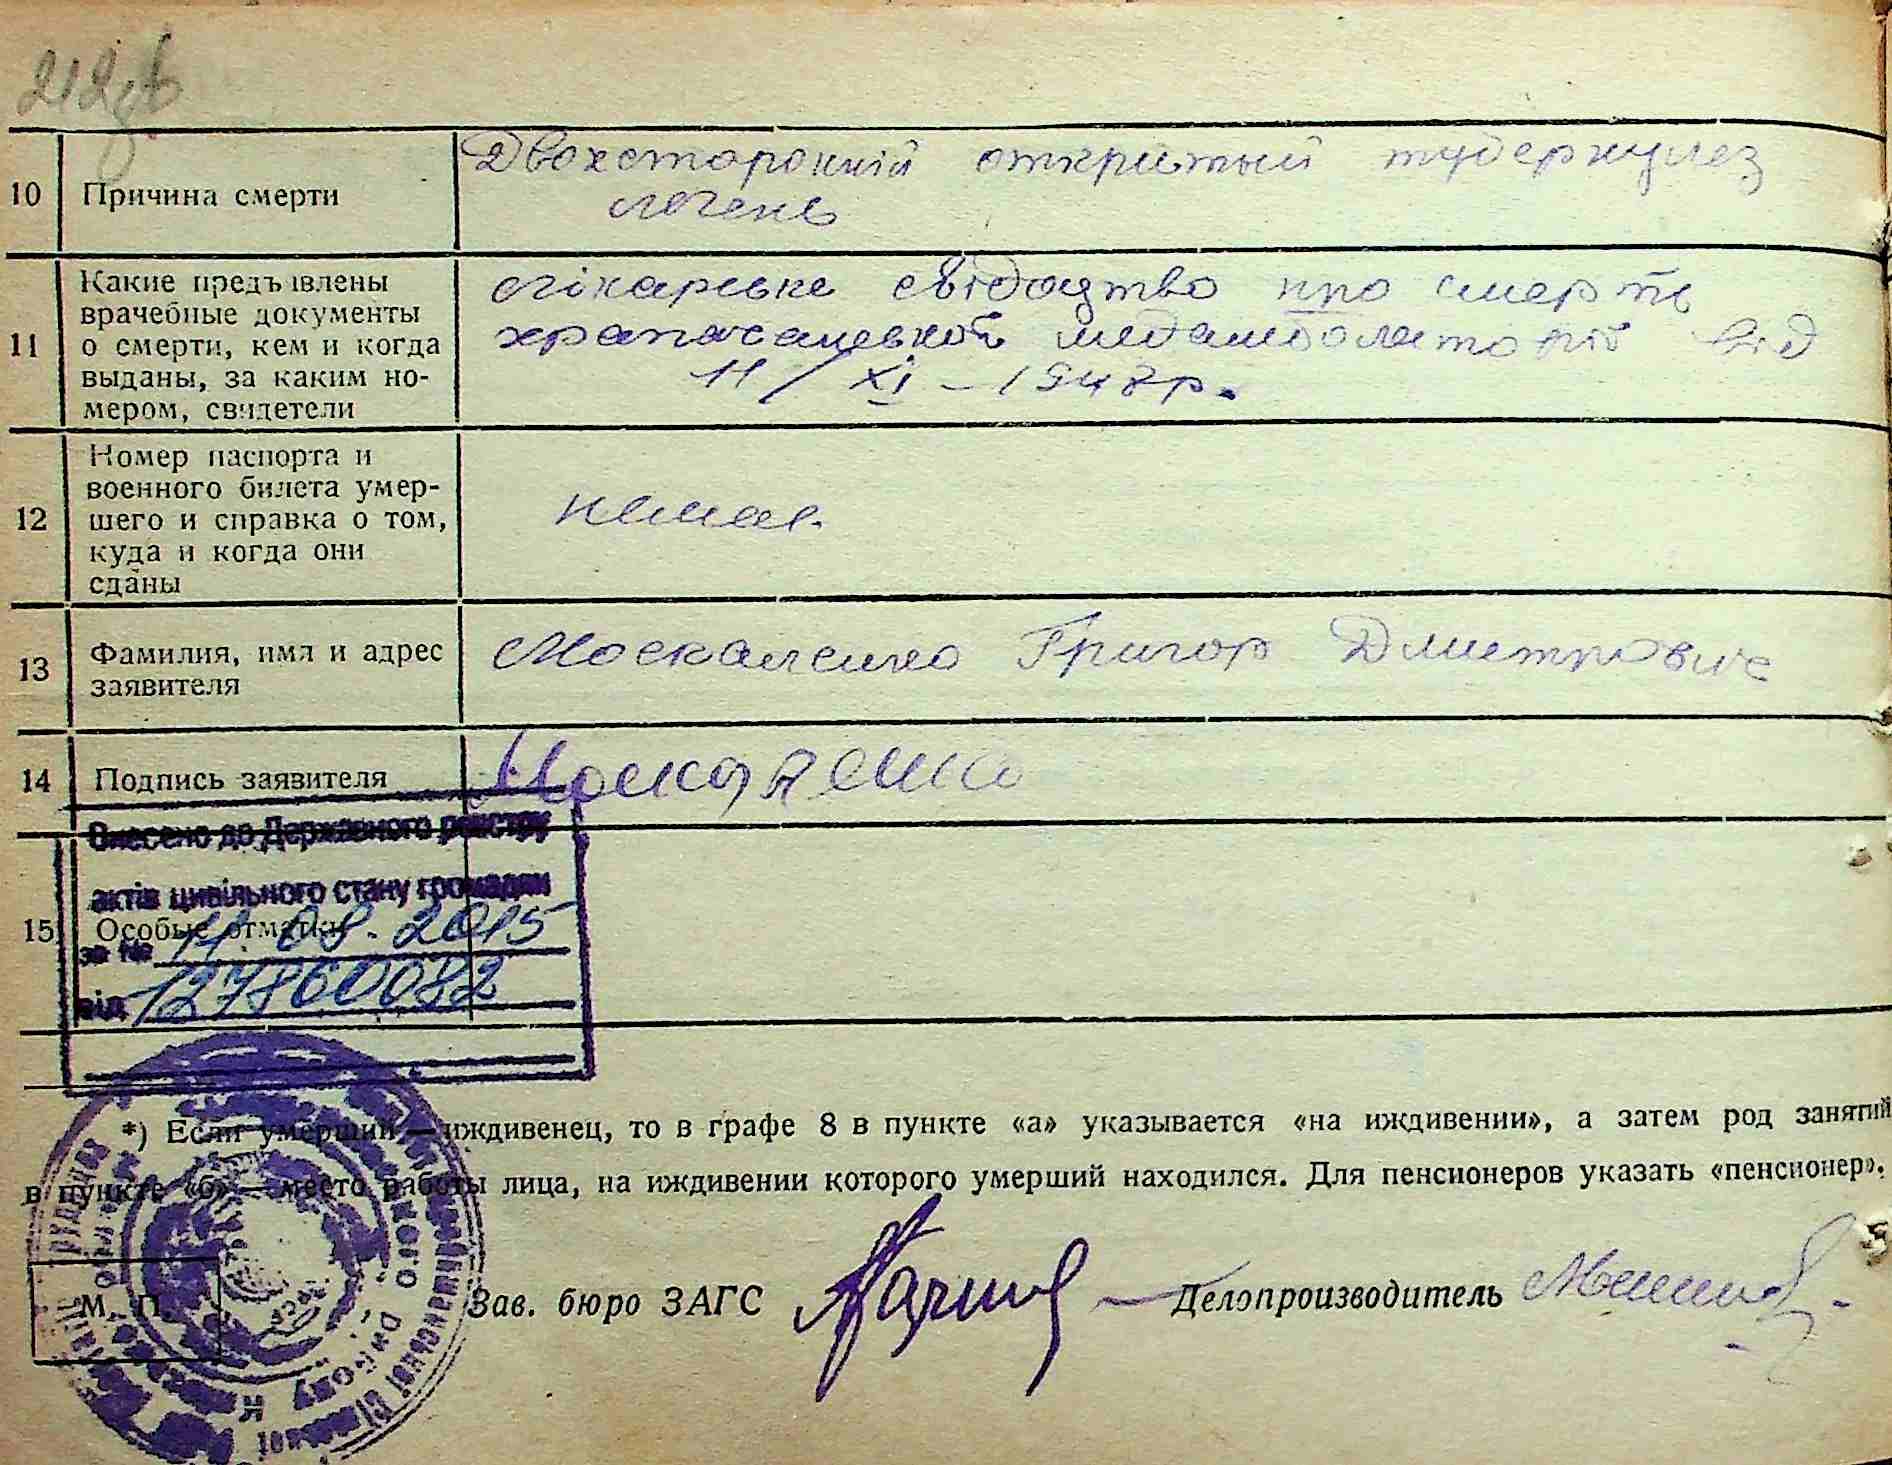 10 Причина смерти Двохсторонній открытый туберкулез
легень
11 Какие предъявлены
врачебные документы
о смерти, кем и когда
выданы, за каким но-
мером, свидетели
лікарське свідоцтво про смерть
медамболаторії від
11/XI - 1947р.
12 Номер паспорта и
военного билета умер-
шего и справка о том,
куда и когда они
сданы
немає.
13 Фамилия, имя и адрес
заявителя
Москаленко Григор Дмитрович
14 Подпись заявителя Москаленко
Внесено до Державного реєстру
актів цивільного стану громадян
15 Особые отметки
за № 11.08.2015
від 127860082
*) Если умерший — иждивенец, то в графе 8 в пункте «а» указывается «на иждивении», а затем род занятий
в пункте «б» — место работы лица, на иждивении которого умерший находился. Для пенсионеров указать «пенсионер».
М. П.
Зав. бюро ЗАГС
Делопроизводитель